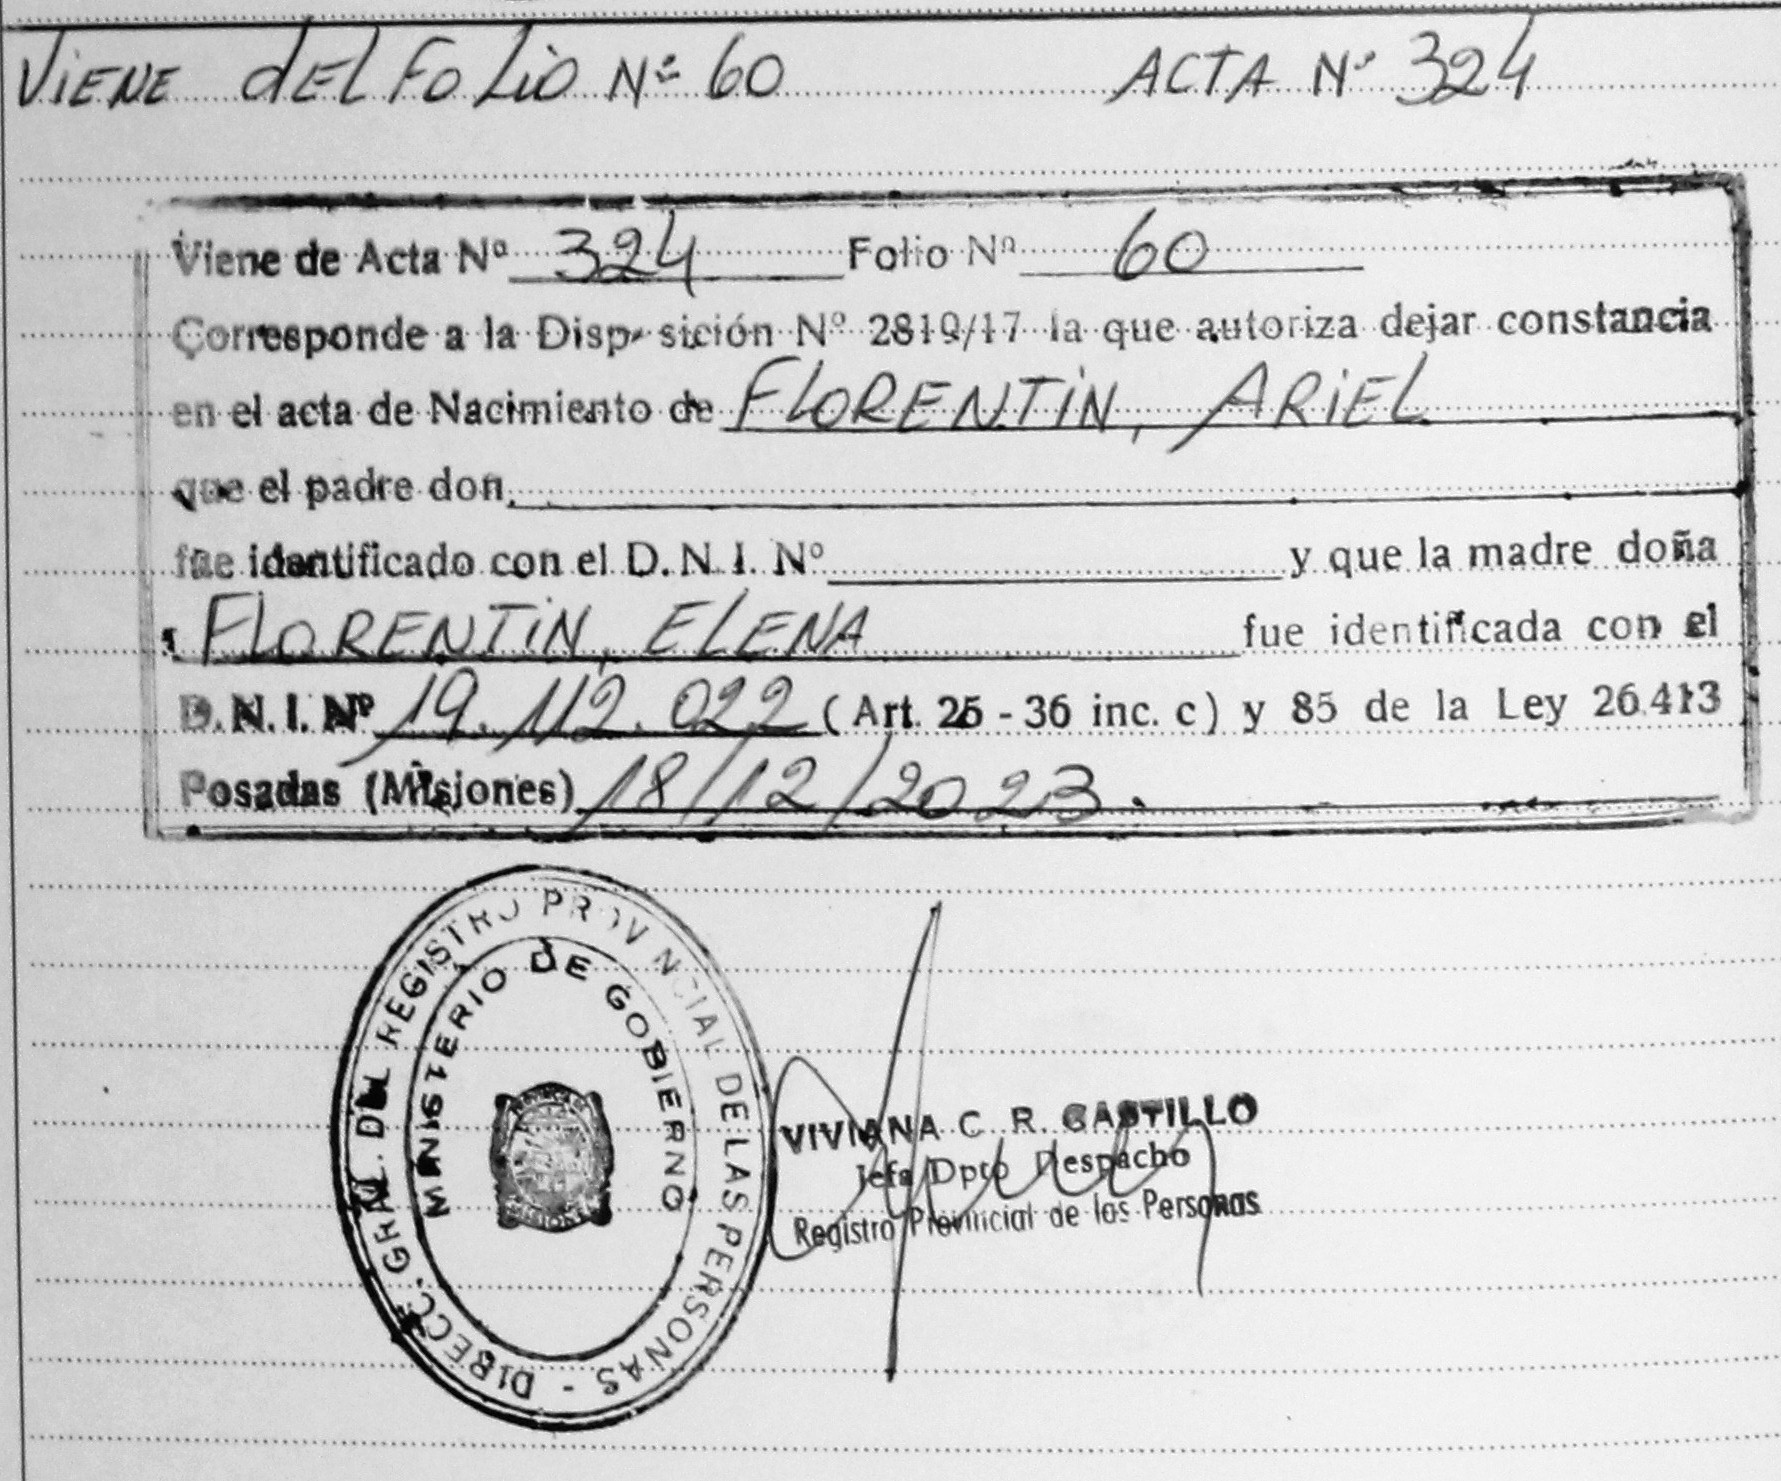 VIENE DEL FOLIO Nº 60 ACTA Nº 324
Viene de Acta Nº 324 Folio Nº 60
Corresponde a la Disp sición Nº 2819/17 la que autoriza dejar constancia
en el acta de Nacimiento de FLORENTIN, ARIEL
que el padre don
fue identificado con el D.N.I. Nº y que la madre doña
FLORENTIN, ELENA fue identificada con el
D.N.I. Nº 19.112.022 (Art. 25 - 36 inc. c) y 85 de la Ley 26.413
Posadas (Misiones) 18/12/2023.
DIRECC. GRAL. DEL REGISTRO PROVINCIAL DE LAS PERSONAS -
MINISTERIO DE GOBIERNO
MISIONES
VIVIANA C. R. CASTILLO
Jefa Dpto Despacho
Registro Provincial de las Personas